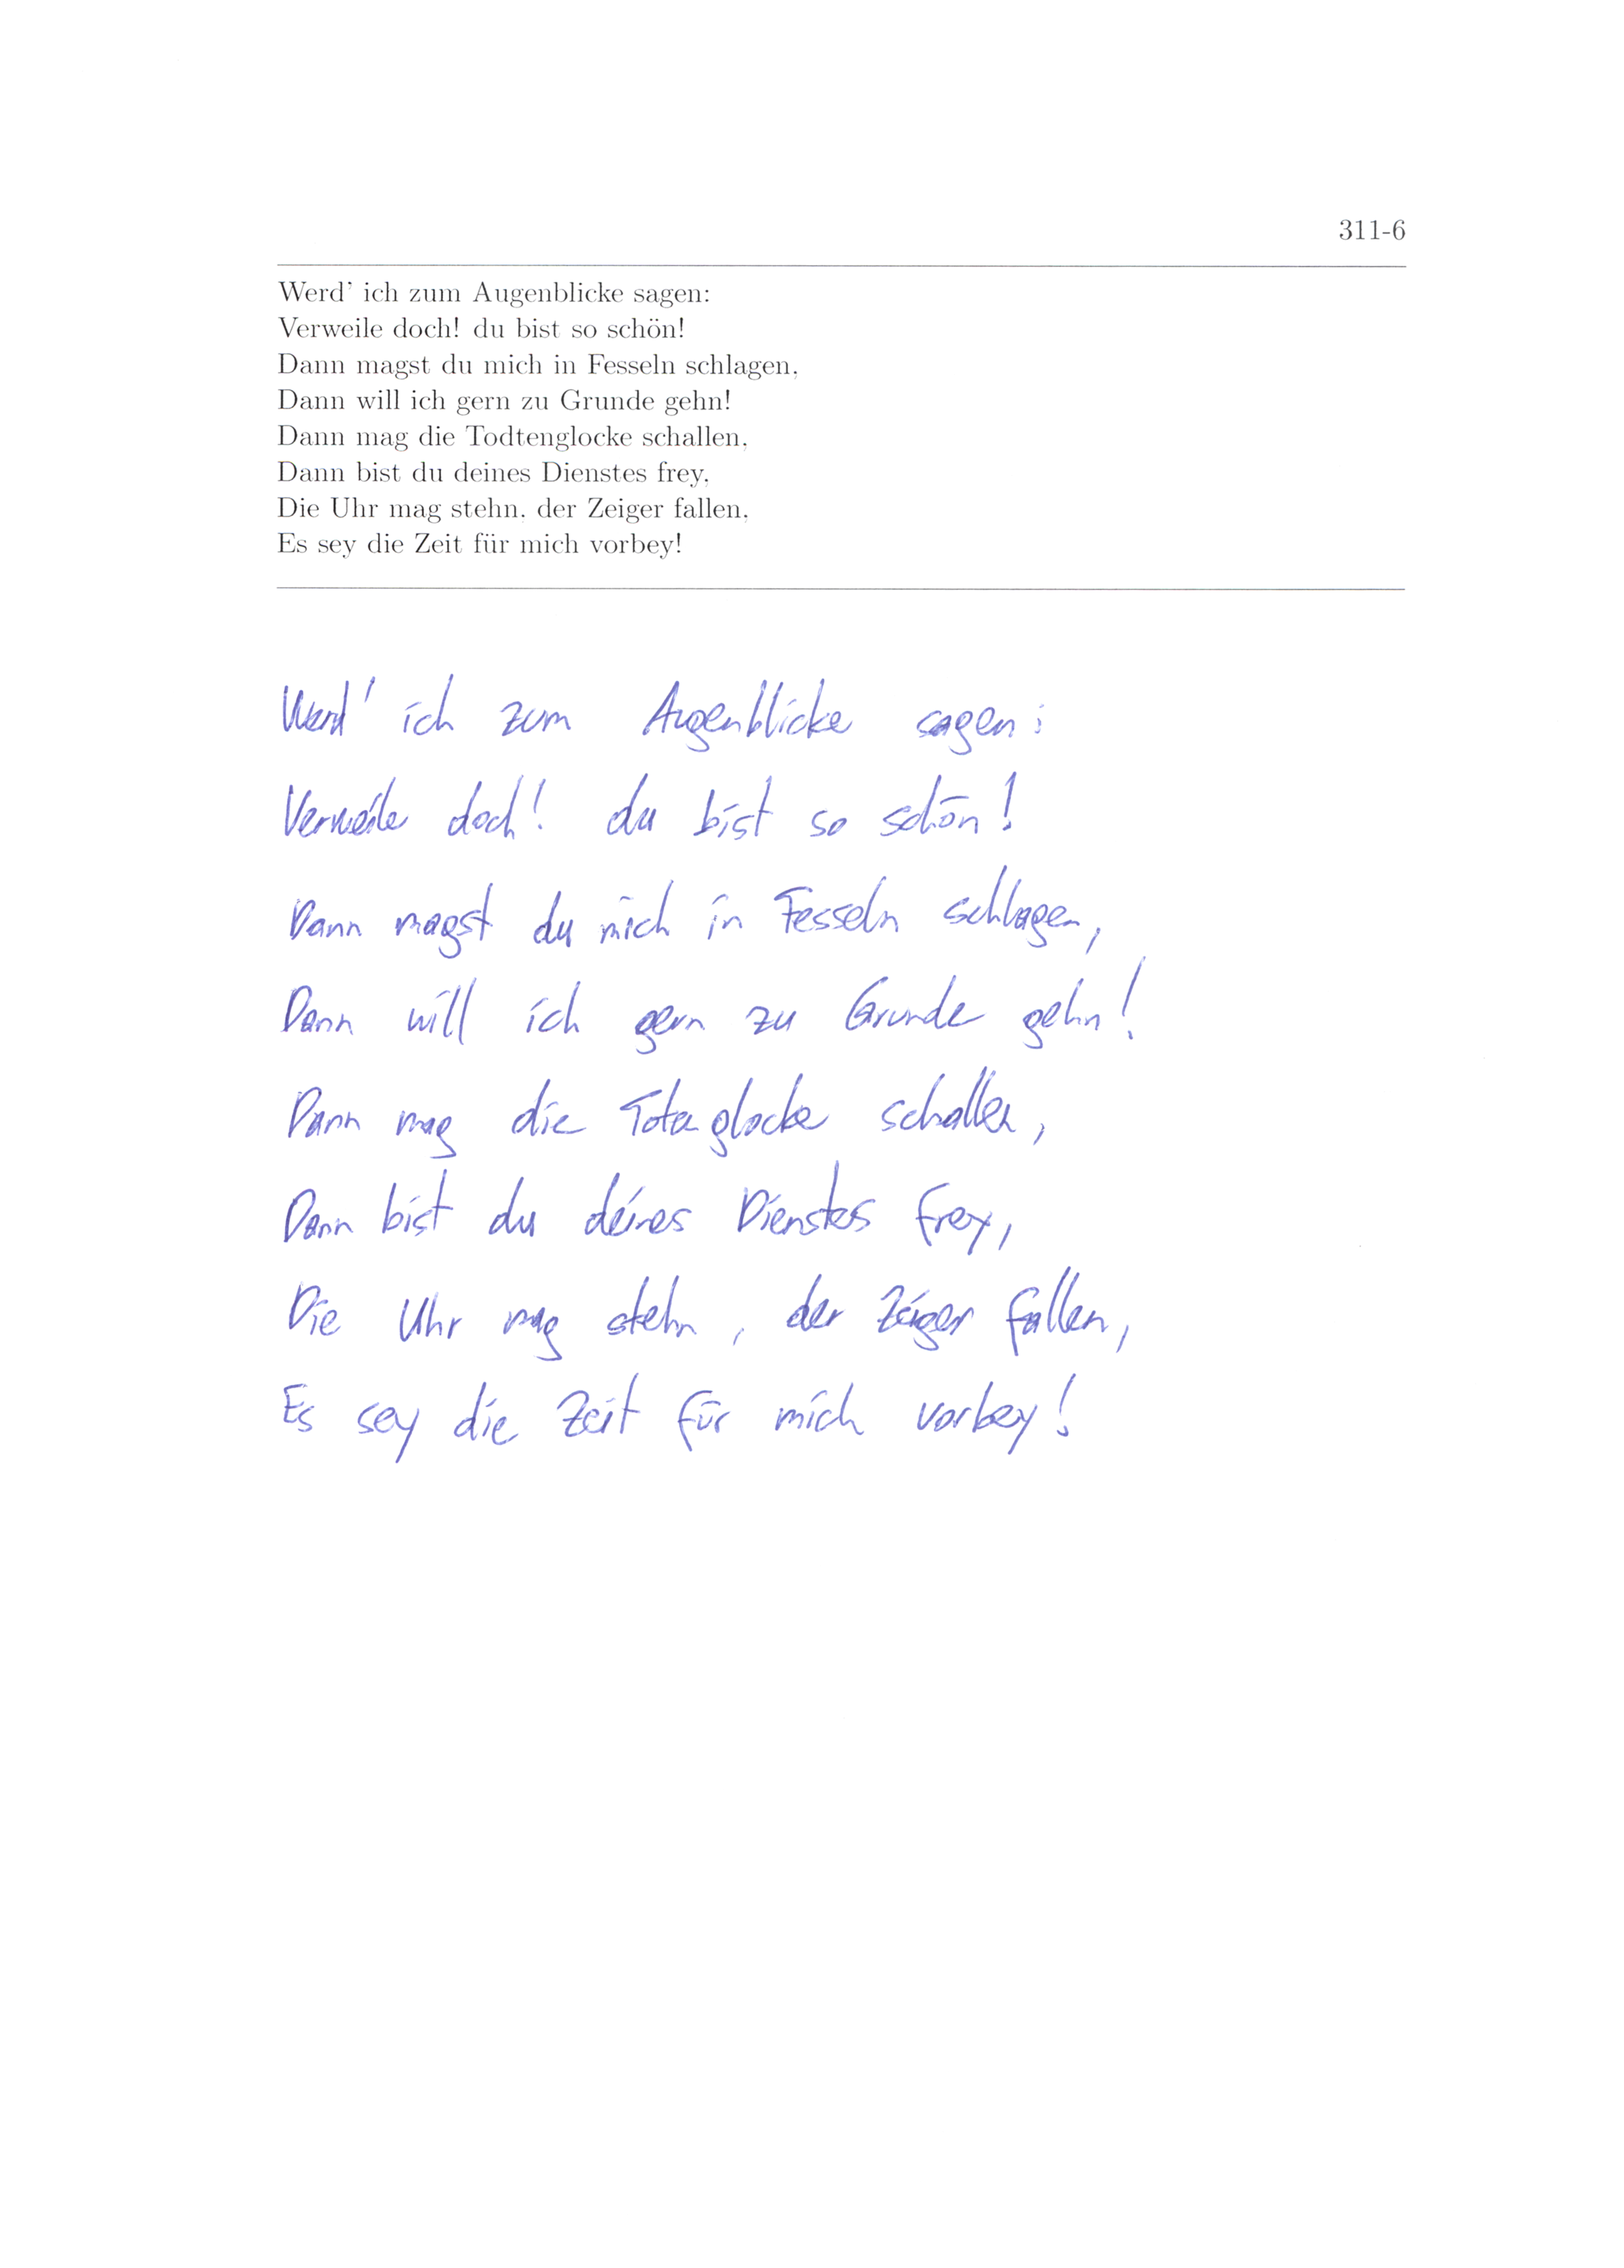 311-6
Werd' ich zum Augenblicke sagen:
Verweile doch! du bist so schön!
Dann magst du mich in Fesseln schlagen,
Dann will ich gern zu Grunde gehn!
Dann mag die Todtenglocke schallen,
Dann bist du deines Dienstes frey,
Die Uhr mag stehn, der Zeiger fallen,
Es sey die Zeit für mich vorbey!
Werd' ich zum Augenblicke sagen:
Verweile doch! du bist so schön!
Dann magst du mich in Fesseln schlagen,
Dann will ich gern zu Grunde gehn!
Dann mag die Totenglocke schallen,
Dann bist du deines Dienstes frey,
Die Uhr mag stehn, der Zeiger fallen,
Es sey die Zeit für mich vorbey!